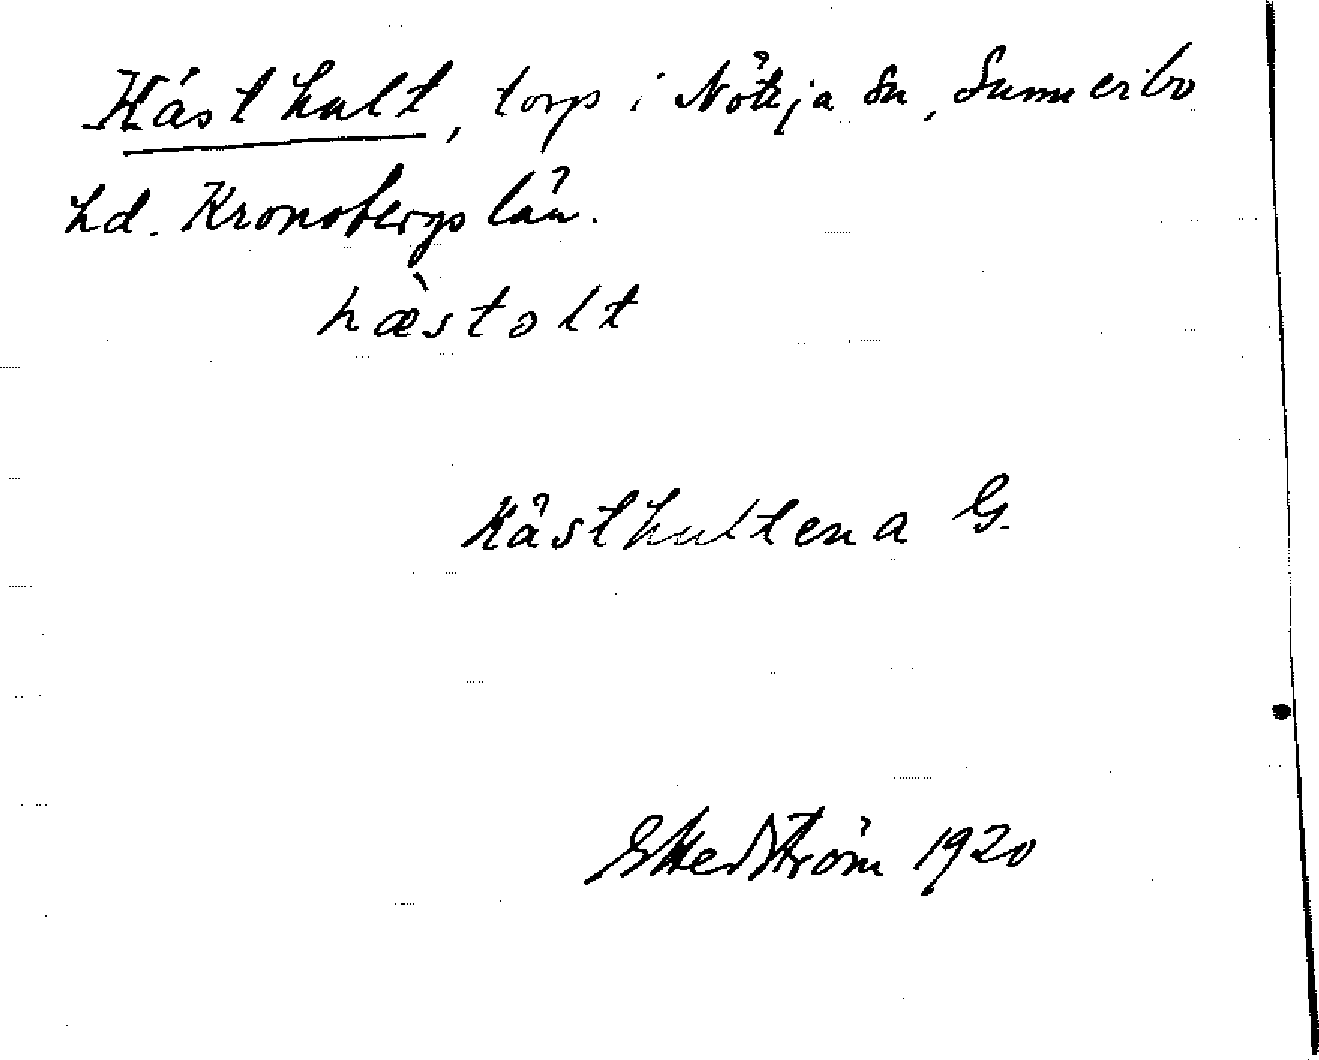 Hästhult, torp i Nöttja sn, Sunnerbo
hd. Kronobergs län.
hæ̀stolt
Hästhultena G.
G Hedström 1920